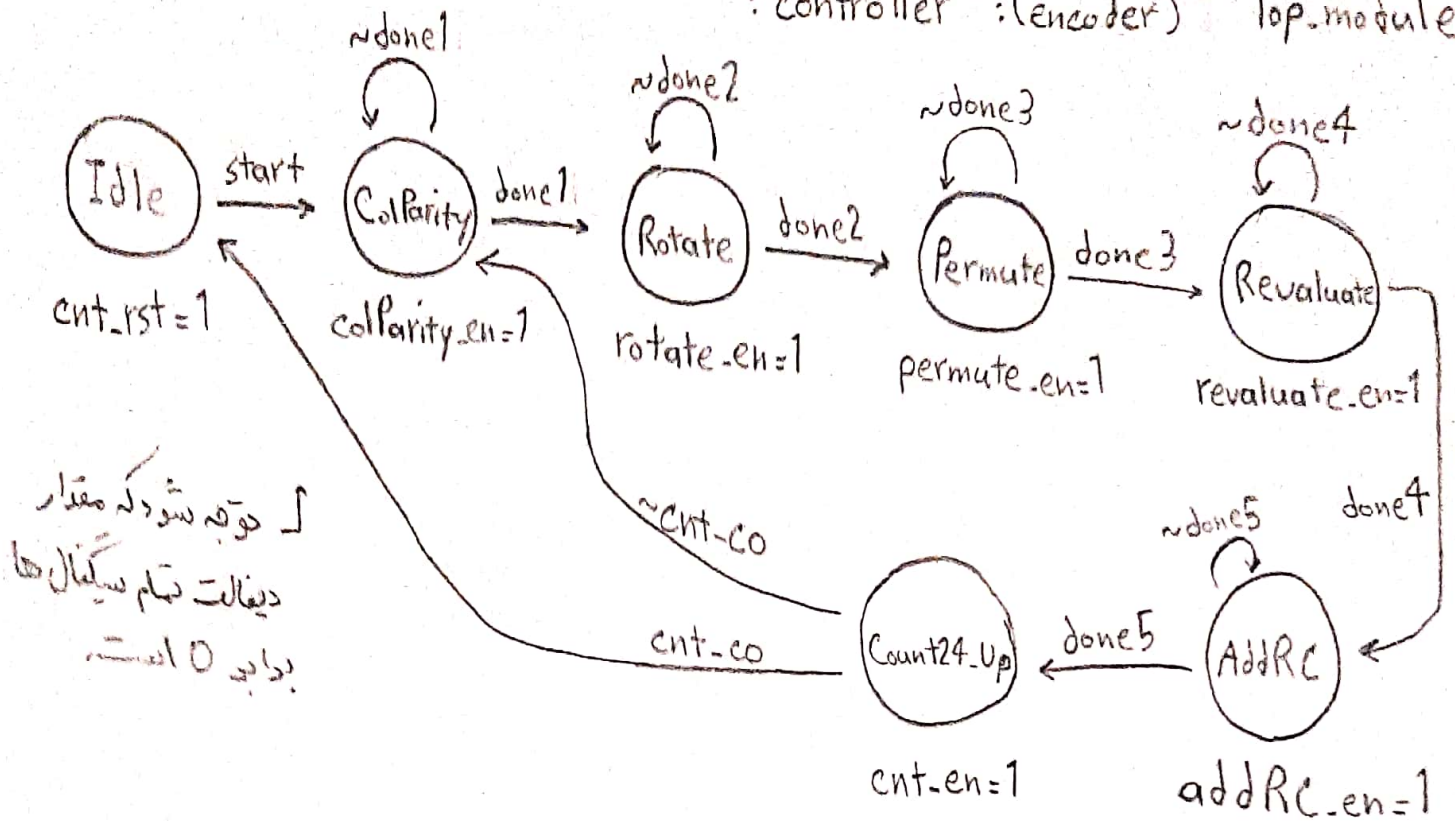 : controller :(encoder) Top-module
~done1
~done2
~done3
~done4
Idle
start
ColParity
done1
Rotate
done2
Permute
done3
Revaluate
cnt_rst=1
colParity_en=1
rotate_en=1
permute_en=1
revaluate_en=1
توجه شود که مقدار
دیفالت تمام سیگنال ها
برابر 0 است.
~cnt-co
done4
~done5
cnt-co
Count24_Up
done5
AddRC
cnt-en=1
addRC-en=1